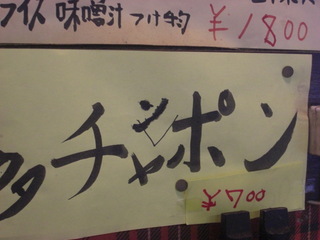 ライス 味噌汁 つけ物 ¥1800
タチャンポン
¥700